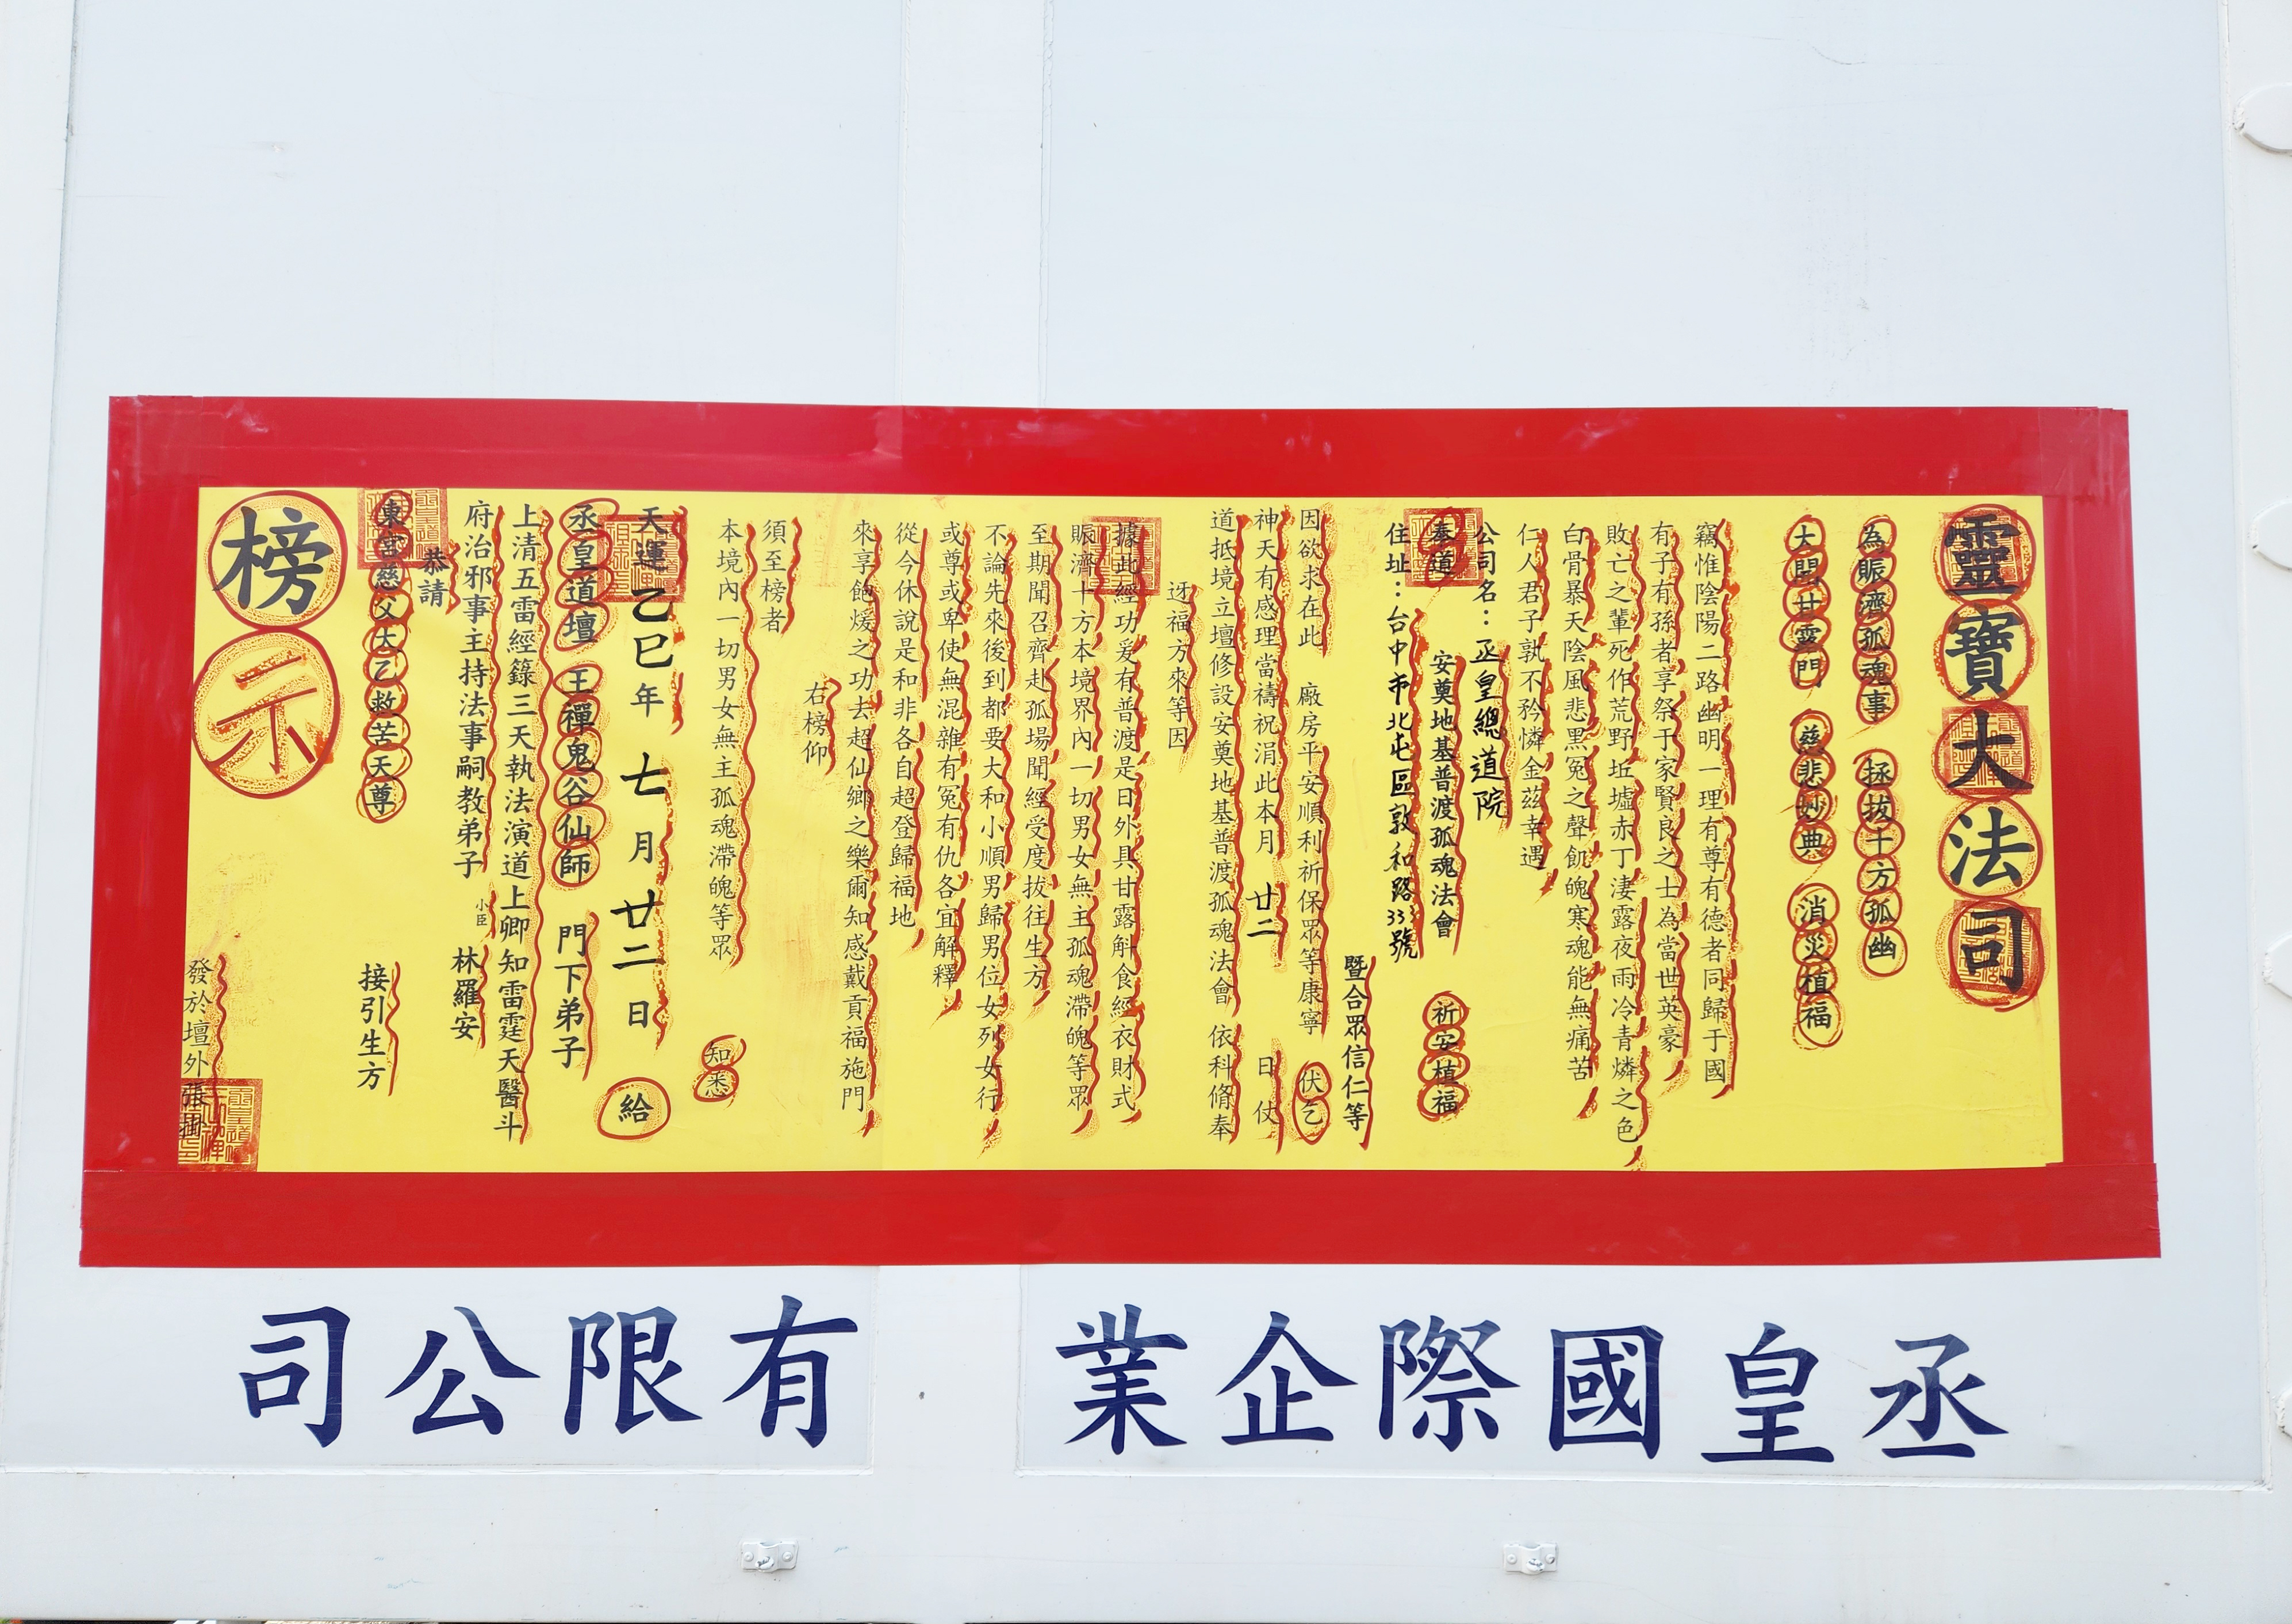 靈寶大法司
為賑濟孤魂事 拯拔十方孤幽
大開甘露門 慈悲妙典 消災植福
竊惟陰陽二路幽明一理有尊有德者同歸于國
有子有孫者享祭于家賢良之士為當世英豪
敗亡之輩死作荒野坵墟赤丁淒露夜雨冷青燐之色
白骨暴天陰風悲黑冤之聲飢魄寒魂能無痛苦
仁人君子孰不矜憐金茲幸遇
公司名：丞皇總道院
奉道 安奠地基普渡孤魂法會 祈安植福
住址：台中市北屯區敦和路33號
暨合眾信仁等
因欲求在此 廠房平安順利祈保眾等康寧 伏乞
神天有感理當禱祝涓此本月 廿二 日 仗
道抵境立壇修設安奠地基普渡孤魂法會 依科脩奉
迓福方來等因
據此經功爰有普渡是日外具甘露斛食經衣財式
賑濟十方本境界內一切男女無主孤魂滯魄等眾
至期聞召齊赴孤場聞經受度拔往生方
不論先來後到都要大和小順男歸男位女列女行
或尊或卑使無混雜有冤有仇各宜解釋
從今休說是和非各自超登歸福地
來享飽煖之功去超仙鄉之樂爾知感戴貢福施門
右榜仰
須至榜者
本境內一切男女無主孤魂滯魄等眾 知悉
天運乙巳年 七月 廿二日 給
丞皇道壇 王禪鬼谷仙師 門下弟子
上清五雷經籙三天執法演道上卿知雷霆天醫斗
府治邪事主持法事嗣教弟子 小臣 林羅安
恭請
東宮慈父太乙救苦天尊 接引生方
發於壇外張掛
榜示
丞皇國際企業有限公司